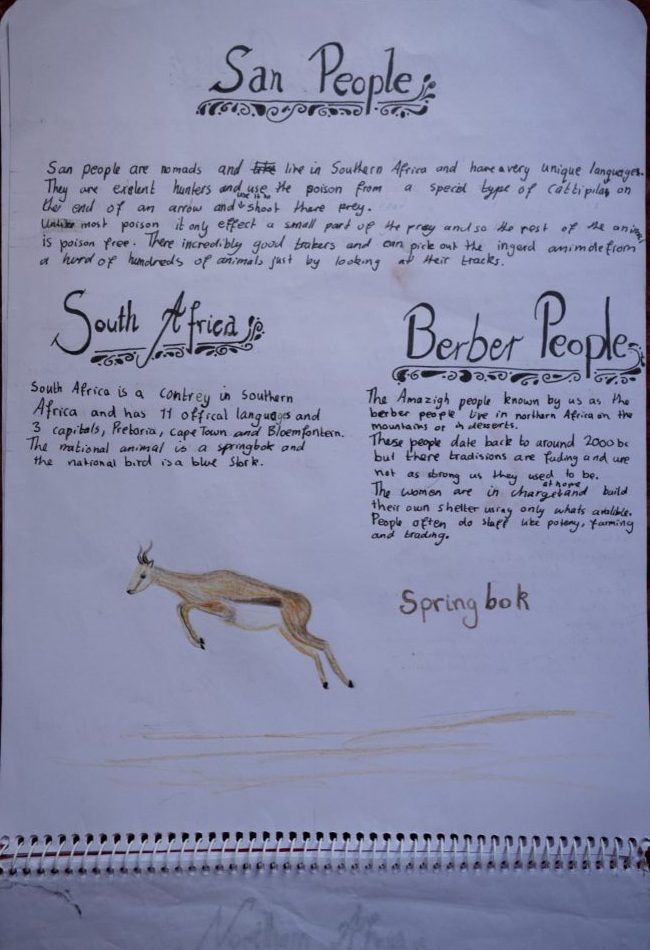 San People
San people are nomads and live in Southern Africa and have a very unique languages.
They are exelent hunters and use the poison from a special type of cattipilar on
the end of an arrow and use it to shoot there prey.
Unlike most poison it only effect a small part of the prey and so the rest of the animal
is poison free. There incredibly good trakers and can pick out the ingerd animale from
a hurd of hundreds of animals just by looking at their tracks.
South Africa
South Africa is a contrey in southern
Africa and has 11 offical languages and
3 capitals, Pretoria, Cape Town and Bloemfontern.
The national animal is a springbok and
the national bird is a blue Stork.
Berber People
The Amazigh people known by us as the
berber people live in northern Africa on the
mountains or in desserts.
These people date back to around 2000 bc
but there tradisions are fading and are
not as strong us they used to be.
The women are in charge at home and build
their own shelter using only whats avalible.
People often do stuff like poteny, farming
and trading.
Springbok
Northern Africa